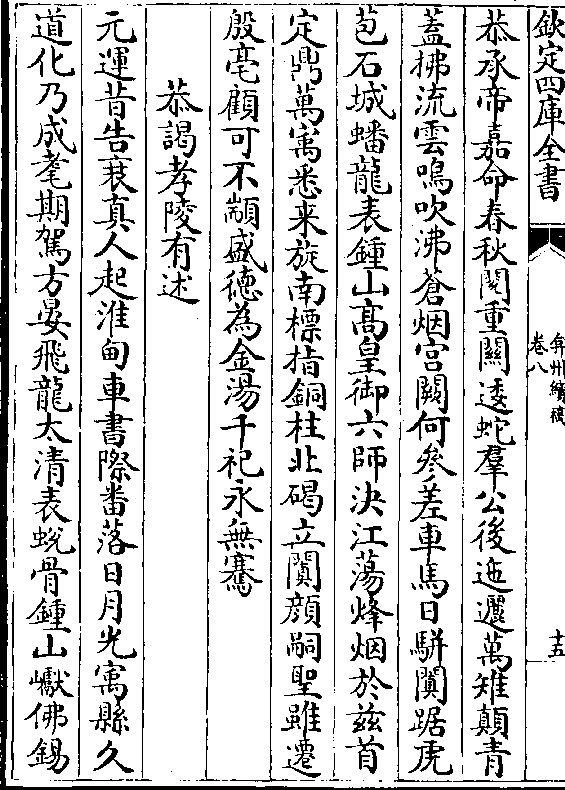 欽定四庫全書
弇州續稿
卷八
十五
恭承帝嘉命春秋閲重闗逶蛇羣公後迤邐萬雉顛青
蓋拂流雲鳴吹沸蒼烟宫闕何參差車馬日駢闐踞虎
苞石城蟠龍表鍾山髙皇御六師決江蕩烽烟於兹首
定鼎萬寓悉来旋南標指銅柱北碣立闐顔嗣聖雖遷
殷亳顧可不顓盛徳為金湯千祀永無騫
恭謁孝陵有述
元運昔告衰真人起淮甸車書際畨落日月光寓縣久
道化乃成耄期駕方晏飛龍太清表蜕骨鍾山巘佛錫